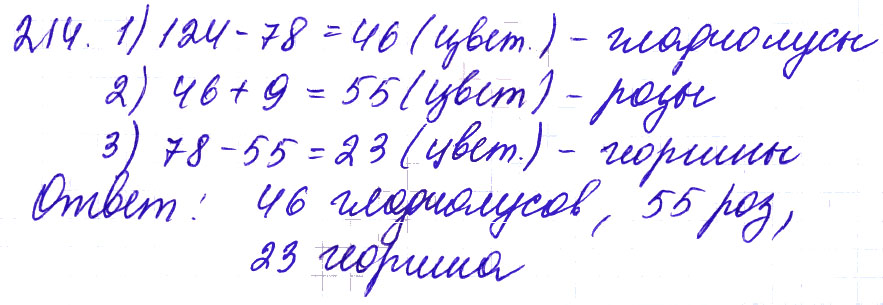 214. 1) 124 - 78 = 46 (цвет.) - гладиолусы
2) 46 + 9 = 55 (цвет) - розы
3) 78 - 55 = 23 (цвет.) - георгины
Ответ: 46 гладиолусов, 55 роз,
23 георгина